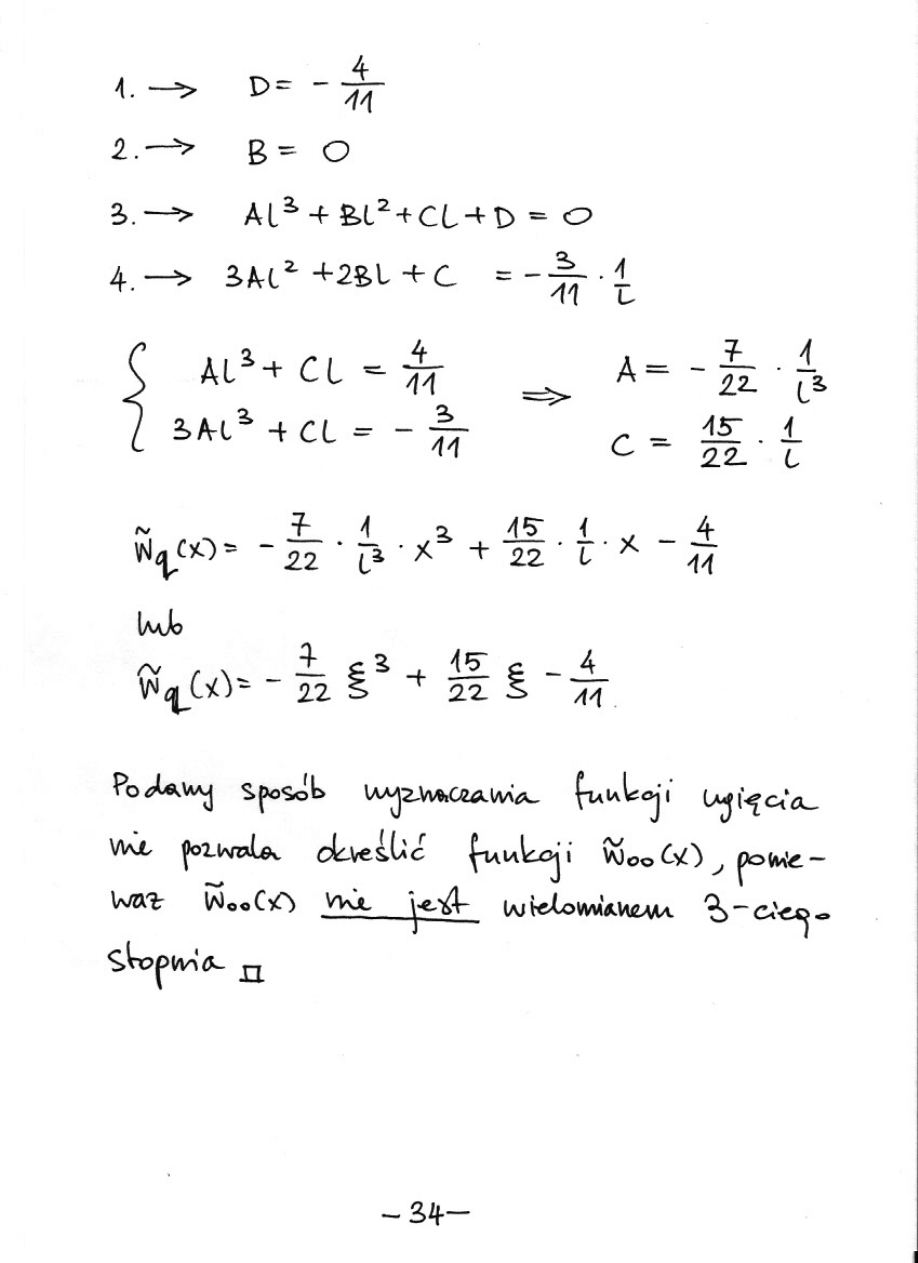 1. → D = - 4/11
2. → B = 0
3. → Al³ + Bl² + Cl + D = 0
4. → 3Al² + 2Bl + C = - 3/11 · 1/l
{ Al³ + Cl = 4/11 ⇒ A = - 7/22 · 1/l³
3Al³ + Cl = - 3/11 C = 15/22 · 1/l
w̃q(x) = - 7/22 · 1/l³ · x³ + 15/22 · 1/l · x - 4/11
lub
w̃q(x) = - 7/22 ξ³ + 15/22 ξ - 4/11
Podany sposób wyznaczania funkcji ugięcia
nie pozwala określić funkcji w̃oo(x), ponie-
waż w̃oo(x) nie jest wielomianem 3-ciego
stopnia
-34-